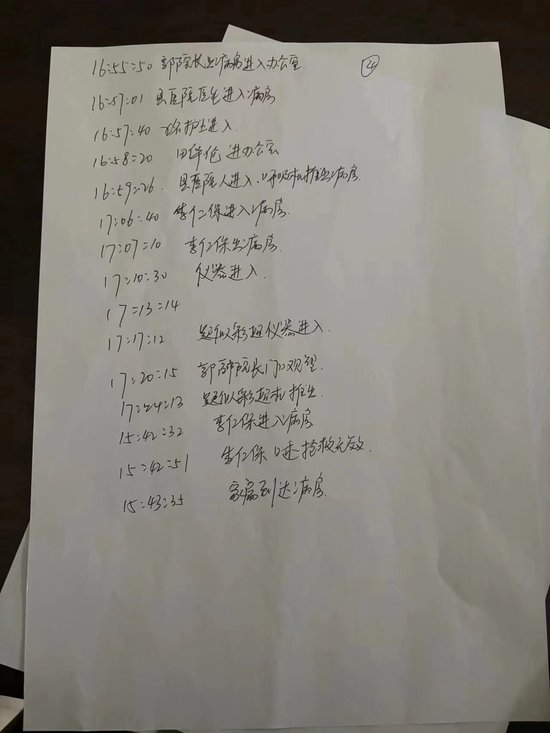 ④
16:55:50 郭院长出病房进入办公室.
16:57:01 县医院医生进入病房
16:57:40 护士进入.
16:58:20 田 进办公室
16:59:26. 县医院人进入、呼吸机推出病房.
17:06:40 李仁保进入病房.
17:07=10 李仁保出病房.
17:10:30 仪器进入.
17=13=14
17:17:12 疑似彩超仪器进入.
17:20:15 郭院长门口观望.
17:24:13 疑似彩超机推出.
15:42:32 李仁保进入病房
15:42=51 李仁保口述抢救无效.
15:43:35 家属到达病房.